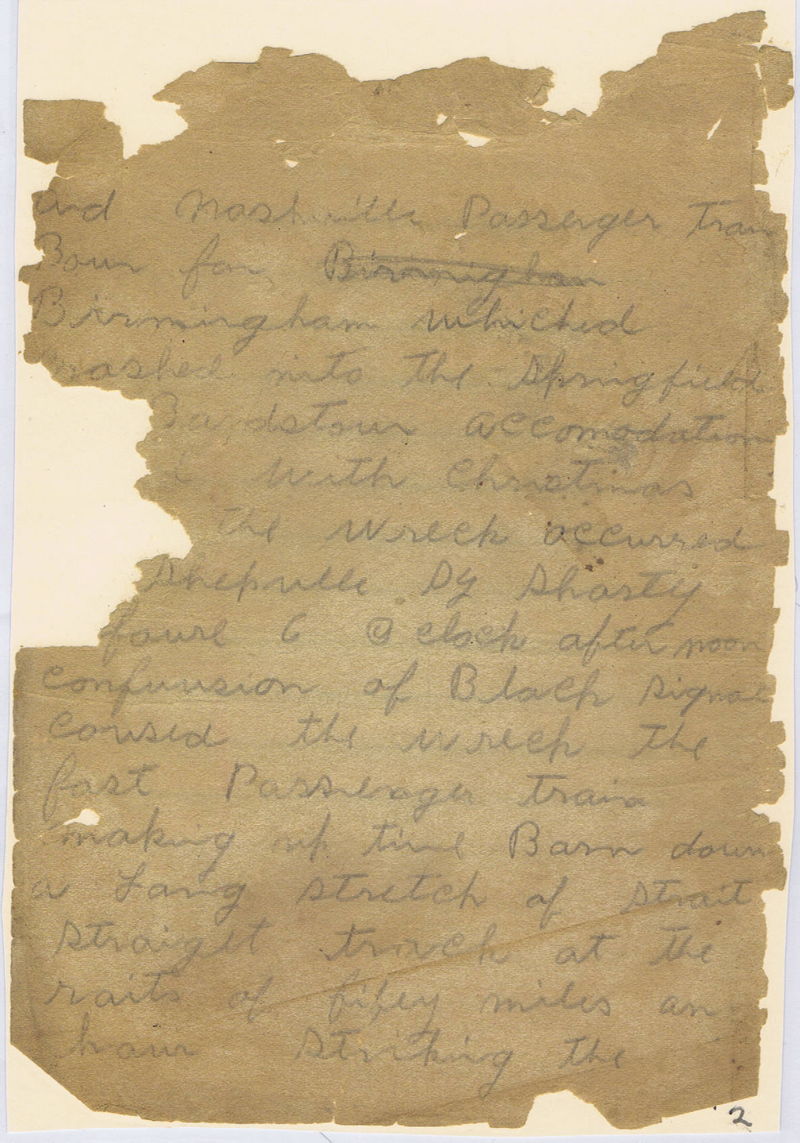 and Nashville Passenger train
Boun for, Birmnigham
Birmingham whiched
mashed into the Springfield
Bardstour accomodation
with Christmas
the wreck occurred
Shepville By Shorty
foure 6 @ clock after noon
confuusion of Block Signal
coused the wreck the
fast Passenger train
making up time Barn down
a Long stretch of strait
straiglt track at the
raits of fifey miles an
hour striking the
2